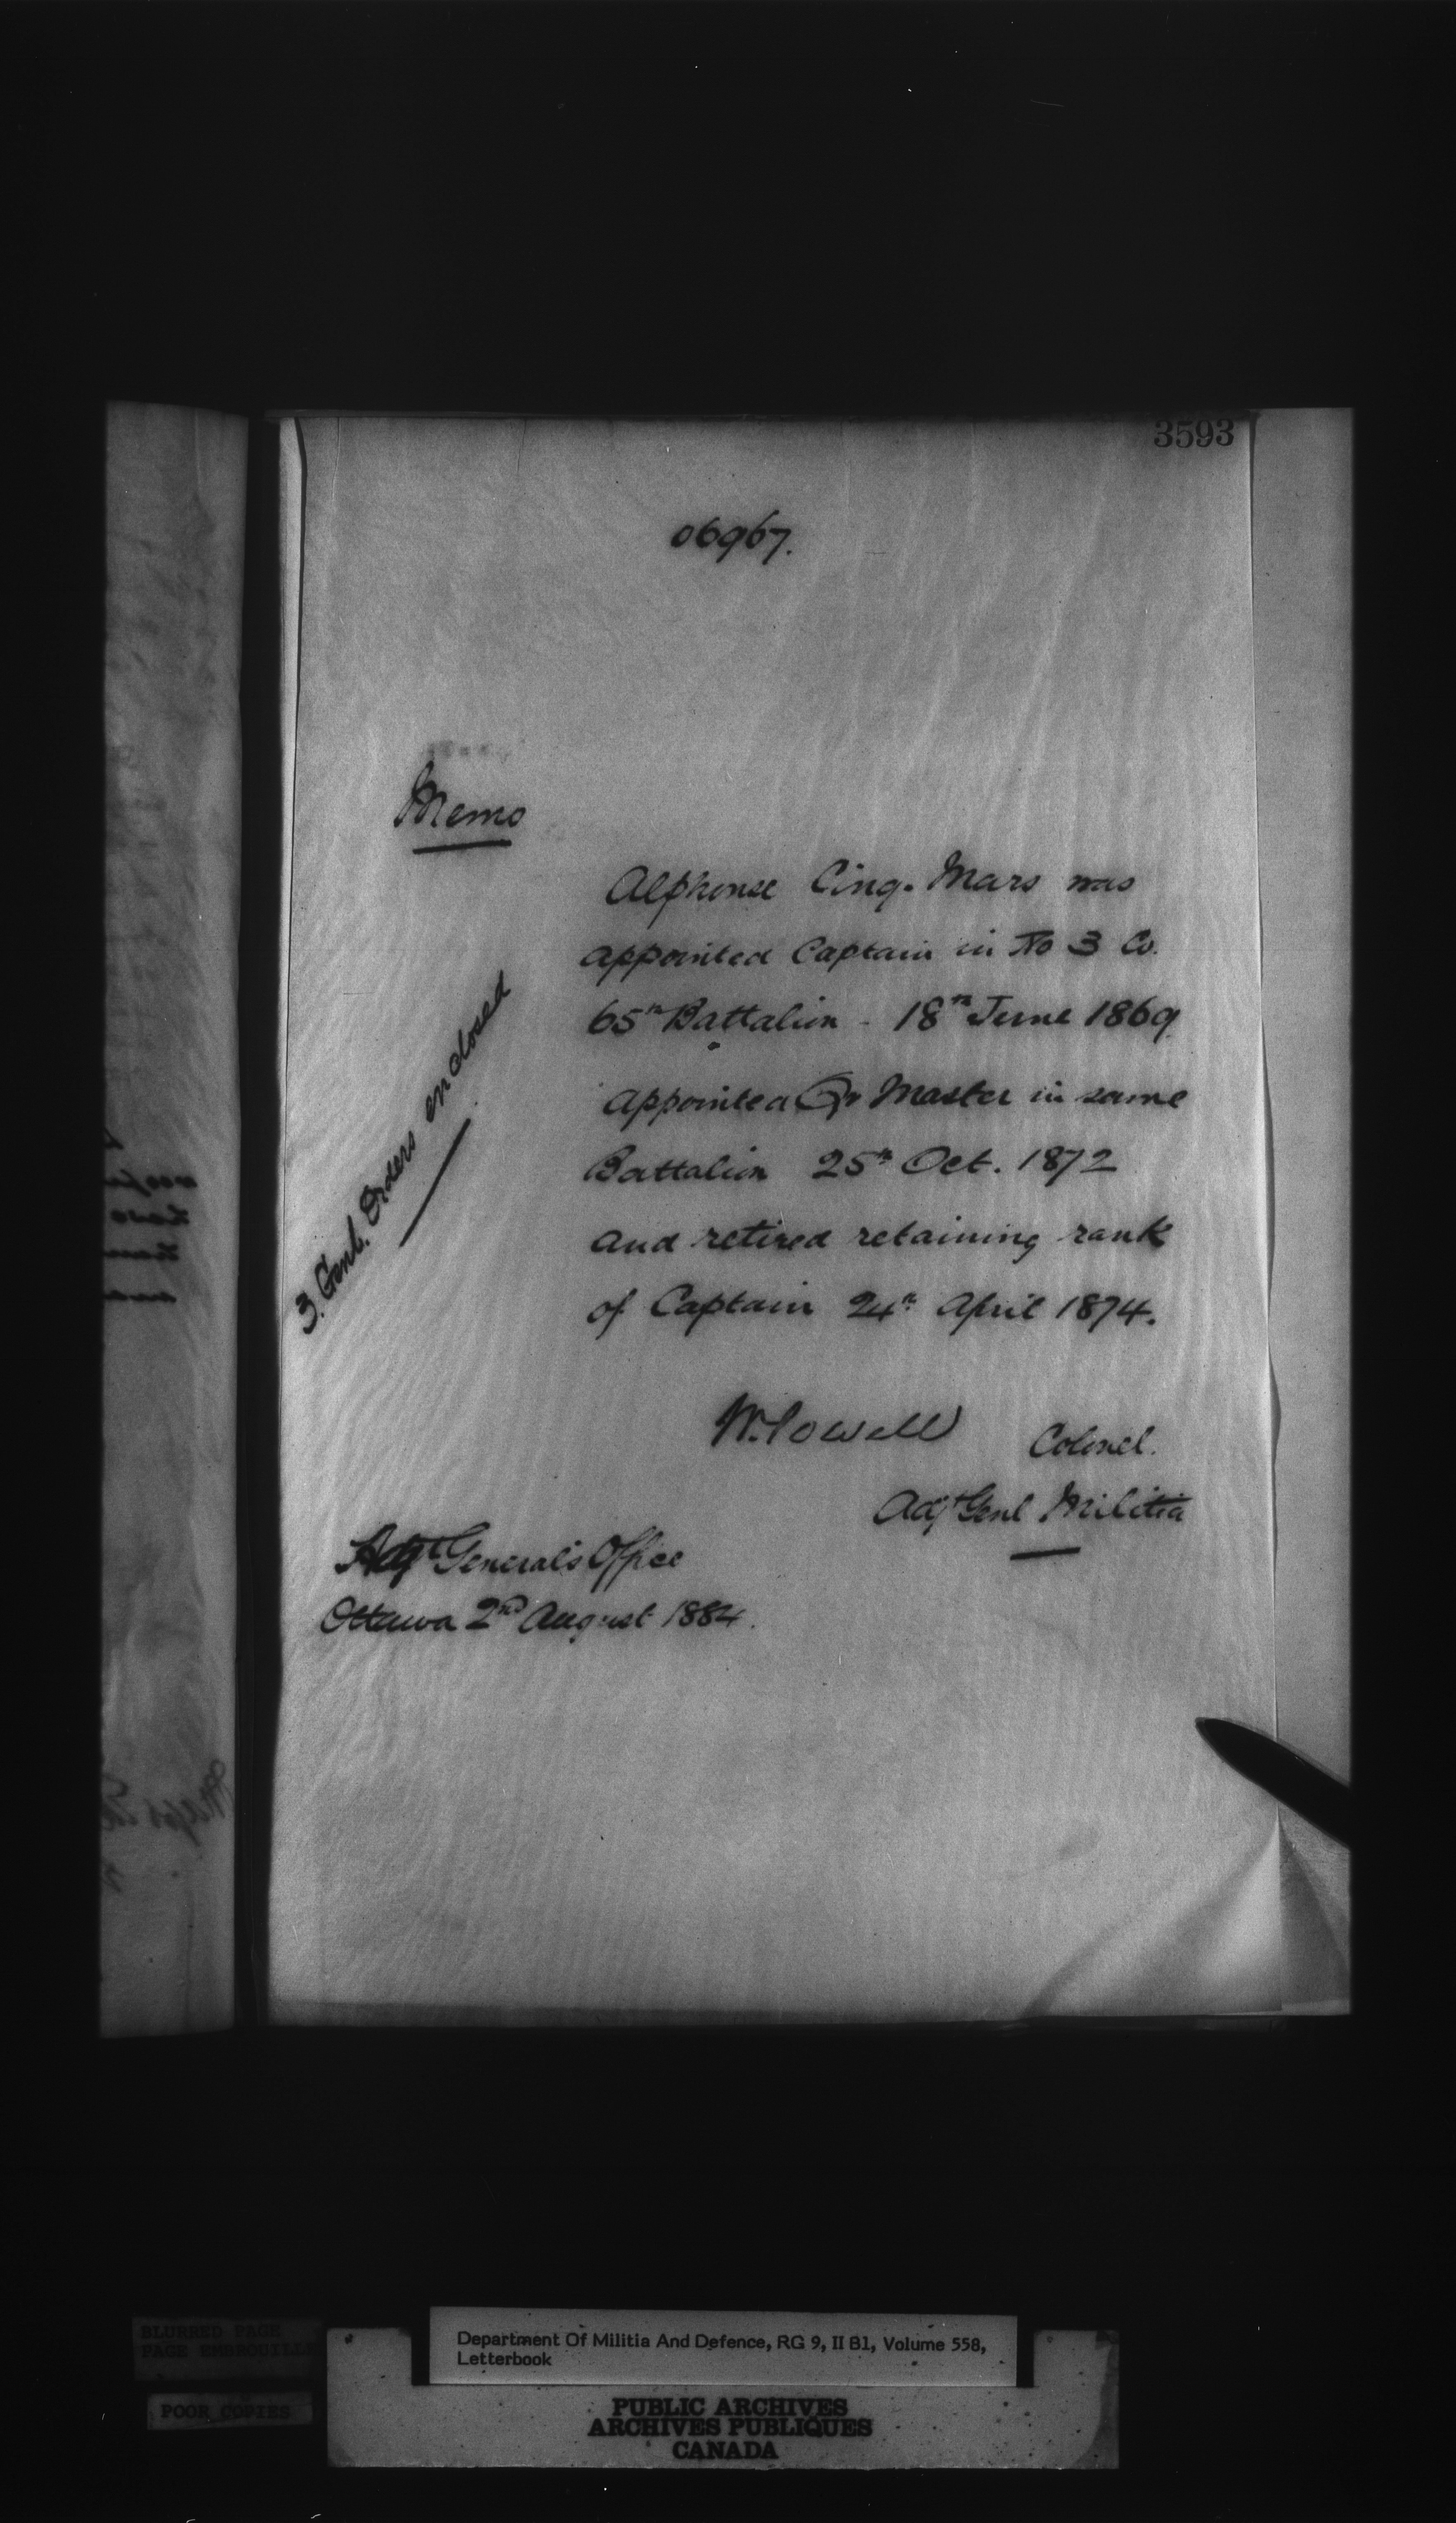 3593
06967.
Memo
Alphonse Cinq-Mars was
appointed Captain in No 3 Co.
65th Battalion - 18th June 1869
Appointed Qr Master in same
Battalion 25th Oct. 1872
and retired retaining rank
of Captain 24th April 1874.
3. Genl. Orders enclosed
W. Powell Colonel.
Adjt Genl Militia
Adjt General's Office
Ottawa 2nd August 1884.
BLURRED PAGE
PAGE EMBROUILLE
POOR COPIES
Department Of Militia And Defence, RG 9, II B1, Volume 558,
Letterbook
PUBLIC ARCHIVES
ARCHIVES PUBLIQUES
CANADA